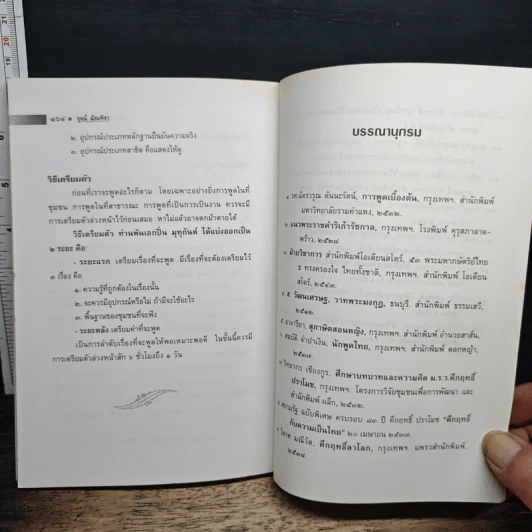 ๑๖๔ ๑ รุจน์ มัณฑิรา
๒. อุปกรณ์ประเภทหลักฐานยืนยันความจริง
๓. อุปกรณ์ประเภทสาธิต คือแสดงให้ดู
วิธีเตรียมตัว
ก่อนที่เราจะพูดอะไรก็ตาม โดยเฉพาะอย่างยิ่งการพูดในที่
ชุมชน การพูดในที่สาธารณะ การพูดที่เป็นการเป็นงาน ควรจะมี
การเตรียมตัวล่วงหน้าไว้ก่อนเสมอ หาไม่แล้วอาจตกม้าตายได้
วิธีเตรียมตัว ท่านพันเอกปิ่น มุทุกันต์ ได้แบ่งออกเป็น
๒ ระยะ คือ
- ระยะแรก เตรียมเรื่องที่จะพูด มีเรื่องที่จะต้องเตรียมไว้
๓ เรื่อง คือ
๑. ความรู้ที่ถูกต้องในเรื่องนั้น
๒. จะควรมีอุปกรณ์หรือไม่ ถ้ามีจะใช้อะไร
๓. พื้นฐานของชุมชนที่จะฟัง
- ระยะหลัง เตรียมคำที่จะพูด
เป็นการลำดับเรื่องที่จะพูดให้พอเหมาะพอดี ในขั้นนี้ควรมี
การเตรียมตัวล่วงหน้าสัก ๖ ชั่วโมงถึง ๑ วัน
บรรณานุกรม
๑. รศ.ฉัตรวรุณ ตันนะรัตน์, การพูดเบื้องต้น, กรุงเทพฯ. สำนักพิมพ์
มหาวิทยาลัยรามคำแหง, ๒๕๓๒.
๒. แนวพระราชดำริเก้ารัชกาล, กรุงเทพฯ. โรงพิมพ์ คุรุสภาลาด-
พร้าว, ๒๕๒๘.
๓. ฝ่ายวิชาการ สำนักพิมพ์โอเดียนสโตร์, ๕๓ พระมหากษัตริย์ไทย
ธ ทรงครองใจ ไทยทั้งชาติ, กรุงเทพฯ. สำนักพิมพ์ โอเดียน
สโตร์, ๒๕๔๓.
๔. ส. วัฒนเศรษฐ, วาทพระมงกุฎ, ธนบุรี. สำนักพิมพ์ ธรรมเสวี.
๒๕๑๒.
อาจารียา, สุภาษิตสอนหญิง, กรุงเทพฯ. สำนักพิมพ์ อำนวยสาส์น.
สมบัติ จำปาเงิน, นักพูดไทย, กรุงเทพฯ. สำนักพิมพ์ ดอกหญ้า.
๒๕๓๗.
วิทยากร เชียงกูร, ศึกษาบทบาทและความคิด ม.ร.ว.คึกฤทธิ์
ปราโมช, กรุงเทพฯ. โครงการวิจัยชุมชนเพื่อการพัฒนา และ
สำนักพิมพ์ ผลึก, ๒๕๓๒.
สยามรัฐ ฉบับพิเศษ ครบรอบ ๘๓ ปี คึกฤทธิ์ ปราโมช "คึกฤทธิ์
กับความเป็นไทย" ๒๐ เมษายน ๒๕๓๗.
มณีวัต, คึกฤทธิ์ลาโลก, กรุงเทพฯ. แพรวสำนักพิมพ์.
๒๕๓๘.